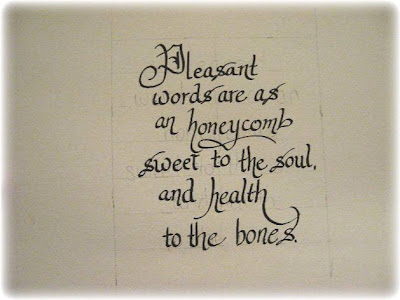 Pleasant
words are as
an honeycomb
sweet to the soul,
and health
to the bones.